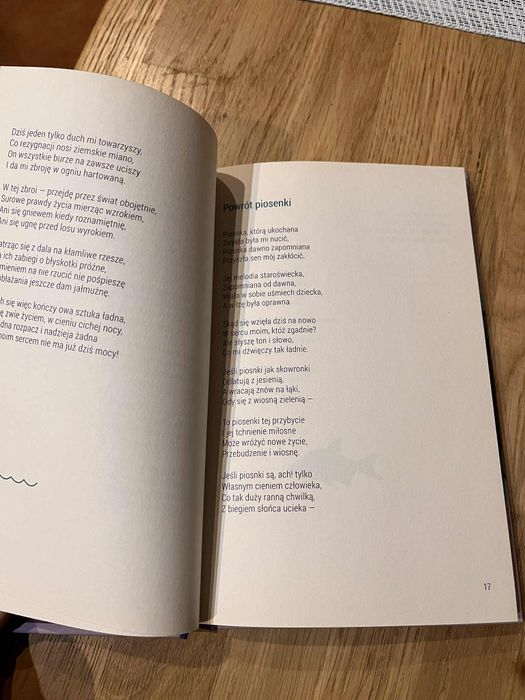 Dziś jeden tylko duch mi towarzyszy,
Co rezygnacji nosi ziemskie miano,
On wszystkie burze na zawsze uciszy
I da mi zbroję w ogniu hartowaną.
W tej zbroi – przejdę przez świat obojętnie,
Surowe prawdy życia mierząc wzrokiem,
Ani się gniewem kiedy roznamiętnię,
Ani się ugnę przed losu wyrokiem.
się z dala na kłamliwe rzesze,
ich zabiegi o błyskotki próżne,
na nie rzucić nie pośpieszę
jeszcze dam jałmużnę.
się więc kończy owa sztuka ładna,
zwie życiem, w cieniu cichej nocy,
rozpacz i nadzieja żadna
sercem nie ma już dziś mocy!
Powrót piosenki
Piosnka, którą ukochana
Zwykła była mi nucić,
Piosnka dawno zapomniana
Przyszła sen mój zakłócić.
Jej melodia staroświecka,
Zapomniana od dawna,
Miała w sobie uśmiech dziecka,
A w łzę była oprawna.
Skąd się wzięła dziś na nowo
W sercu moim, któż zgadnie?
Ale słyszę ton i słowo,
Co mi dźwięczy tak ładnie.
Jeśli piosnki jak skowronki
Odlatują z jesienią,
A wracają znów na łąki,
Gdy się z wiosną zielenią –
To piosenki tej przybycie
I jej tchnienie miłosne
Może wróżyć nowe życie,
Przebudzenie i wiosnę.
Jeśli piosnki są, ach! tylko
Własnym cieniem człowieka,
Co tak duży ranną chwilką,
Z biegiem słońca ucieka –
17